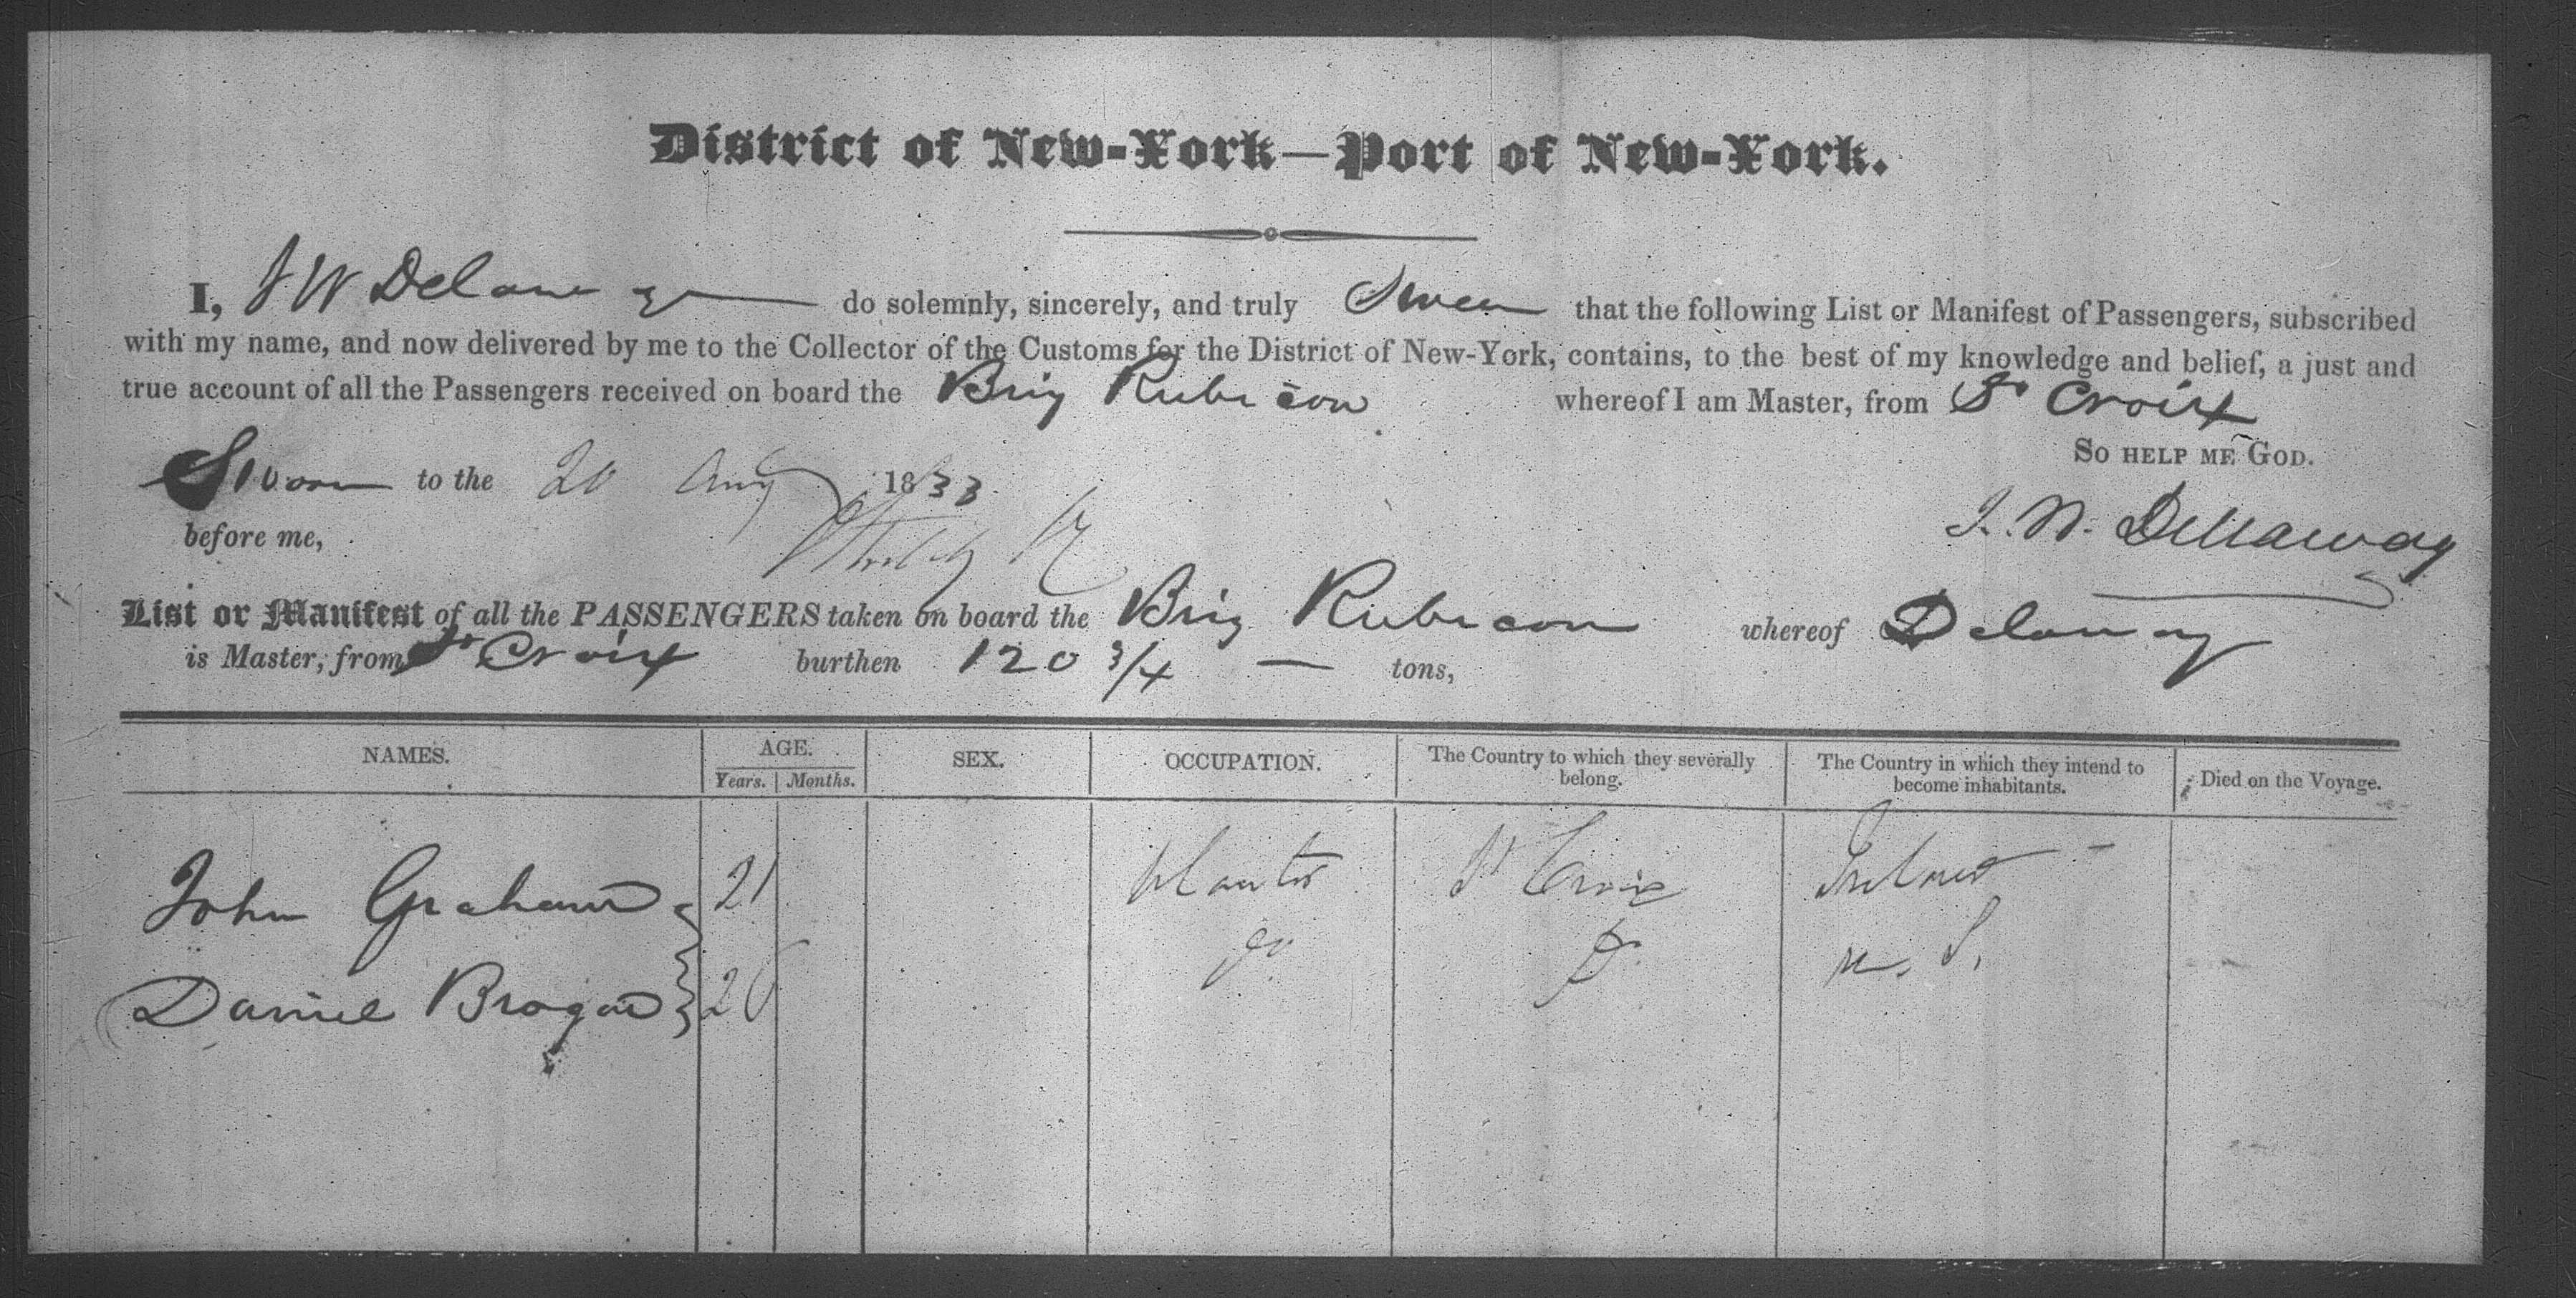 District of New-York—Port of New-York.
I, J W Delaney do solemnly, sincerely, and truly Swear that the following List or Manifest of Passengers, subscribed
with my name, and now delivered by me to the Collector of the Customs for the District of New-York, contains, to the best of my knowledge and belief, a just and
true account of all the Passengers received on board the Brig Rubicon whereof I am Master, from St Croix
So help me God.
Sworn to the 20 Aug 1833
before me,
J. W. Dellaway
List or Manifest of all the PASSENGERS taken on board the Brig Rubicon whereof Delaway
is Master, from St Croix burthen 120 3/4 — tons,
NAMES. AGE. SEX. OCCUPATION. The Country to which they severally belong. The Country in which they intend to become inhabitants. Died on the Voyage.
Years. Months.
John Graham 21 Planter St Croix Ireland —
Daniel Brogan 26 do do U. S.